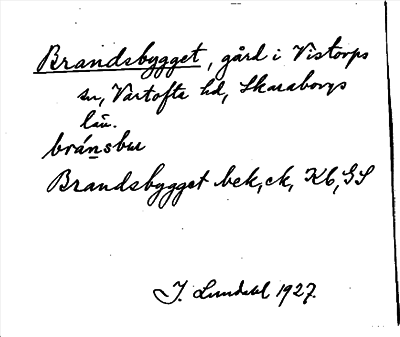 Brandsbygget, gård i Vistorps
sn, Vartofta hd, Skaraborgs
län.
bránsbu
Brandsbygget bek, ek, Kb, GS
J. Lundahl 1927.